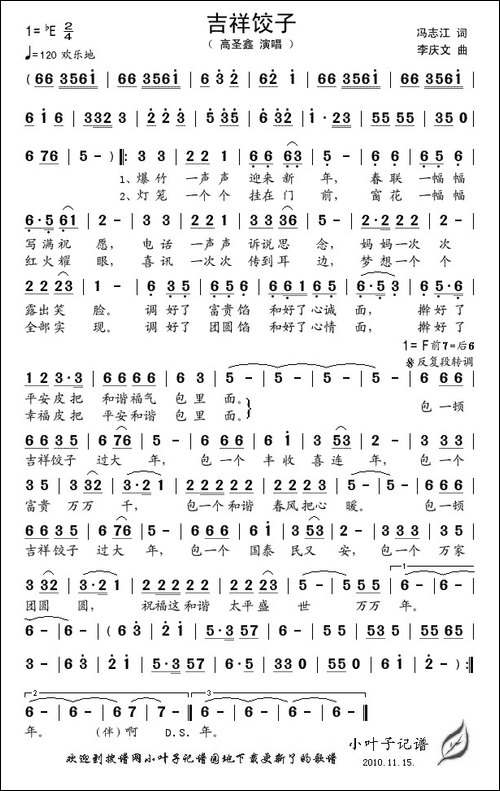 吉祥饺子
( 高圣鑫 演唱 )
1= ♭E 2/4
♩=120 欢乐地
冯志江 词
李庆文 曲
( 66 3561̇ | 66 3561̇ | 3̇2̇ 3̇2̇ | 62̇ 1̇ | 66 3561̇ | 66 3561̇ |
61̇ 6 | 332 3 | 2̇·2̇ 2̇2̇ | 3̇2̇ 3̇5̇ | 63̇ 2̇2̇ | 1̇·2̇3 | 55 55 |
6 76 | 5 - ) ‖: 3 3 | 22 1 | 66 63 | 5 - | 2·2 2 | 66 66 | 65 6 |
1、爆竹 一声声 迎来新 年， 春联 一幅幅
2、灯笼 一个个 挂在门 前， 窗花 一幅幅
6·5 61 | 2 - | 3 3 | 22 1 | 33 36 | 5 - | 2·2 2 | 66 66 | 65 6 |
写满祝 愿， 电话 一声声 诉说思 念， 妈妈一次次
红火耀 眼， 喜讯 一次次 传到耳 边， 梦想一个个
22 23 | 1 - | 6 35 | 6 56 | 65 65 | 6 - | 6 - | 65·6 |
露出笑 脸。 调好了 富贵馅 和好了心诚 面， 擀好了
全部实 现。 调好了 团圆馅 和好了心情 面， 擀好了
1= F前7=后6
𝄋反复段转调
12 3·3 | 66 66 | 63 | 5 - | 5 - | 5 - | 5 - | 6 66 |
平安皮把 和谐福气 包里 面。
幸福皮把 平安和谐 包里 面。
包一顿
66 35 | 6 76 | 5 - | 6 66 | 6 1̇ | 3 53 | 2 - | 2 22 |
吉祥饺子 过大 年， 包一个 丰收 喜连 年， 包一个
3 35 | 3 32 | 3·21 | 1 - | 2 22 22 | 22 23 | 5 - | 6 66 |
富贵 万万 千， 包一个和谐 春风把心 暖。 包一顿
66 35 | 6 76 | 5 - | 6 66 | 62̇ 1̇ | 3 53 | 2 - | 3 33 | 3 5 |
吉祥饺子 过大 年， 包一个 国泰 民又 安， 包一个 万家
3 32 | 3·21 | 1 - | 22 22 | 22 23 | 5 - | 6 7 | 6 - | 6 - |
团圆 圆， 祝福这和谐 太平盛 世 万万 年。
6 - | 6 - | (63̇ | 2̇ 1̇ | 5·3 57 | 66 66 | 5·3 53 | 55 65 |
3 - | 6 3̇ | 2̇ 1̇ | 5·3 57 | 033 50 | 55 65 | 1̇ 2̇ | 2̇ - ) :‖
6 - | 6 - | 6 7 | 7 - ‖ 6 - | 6 - | 6 - | 6 - ‖
年。 (伴)啊 D.S. 年。
小叶子记谱
2010.11.15.
欢迎到搜谱网小叶子记谱园地下载更新了的歌谱